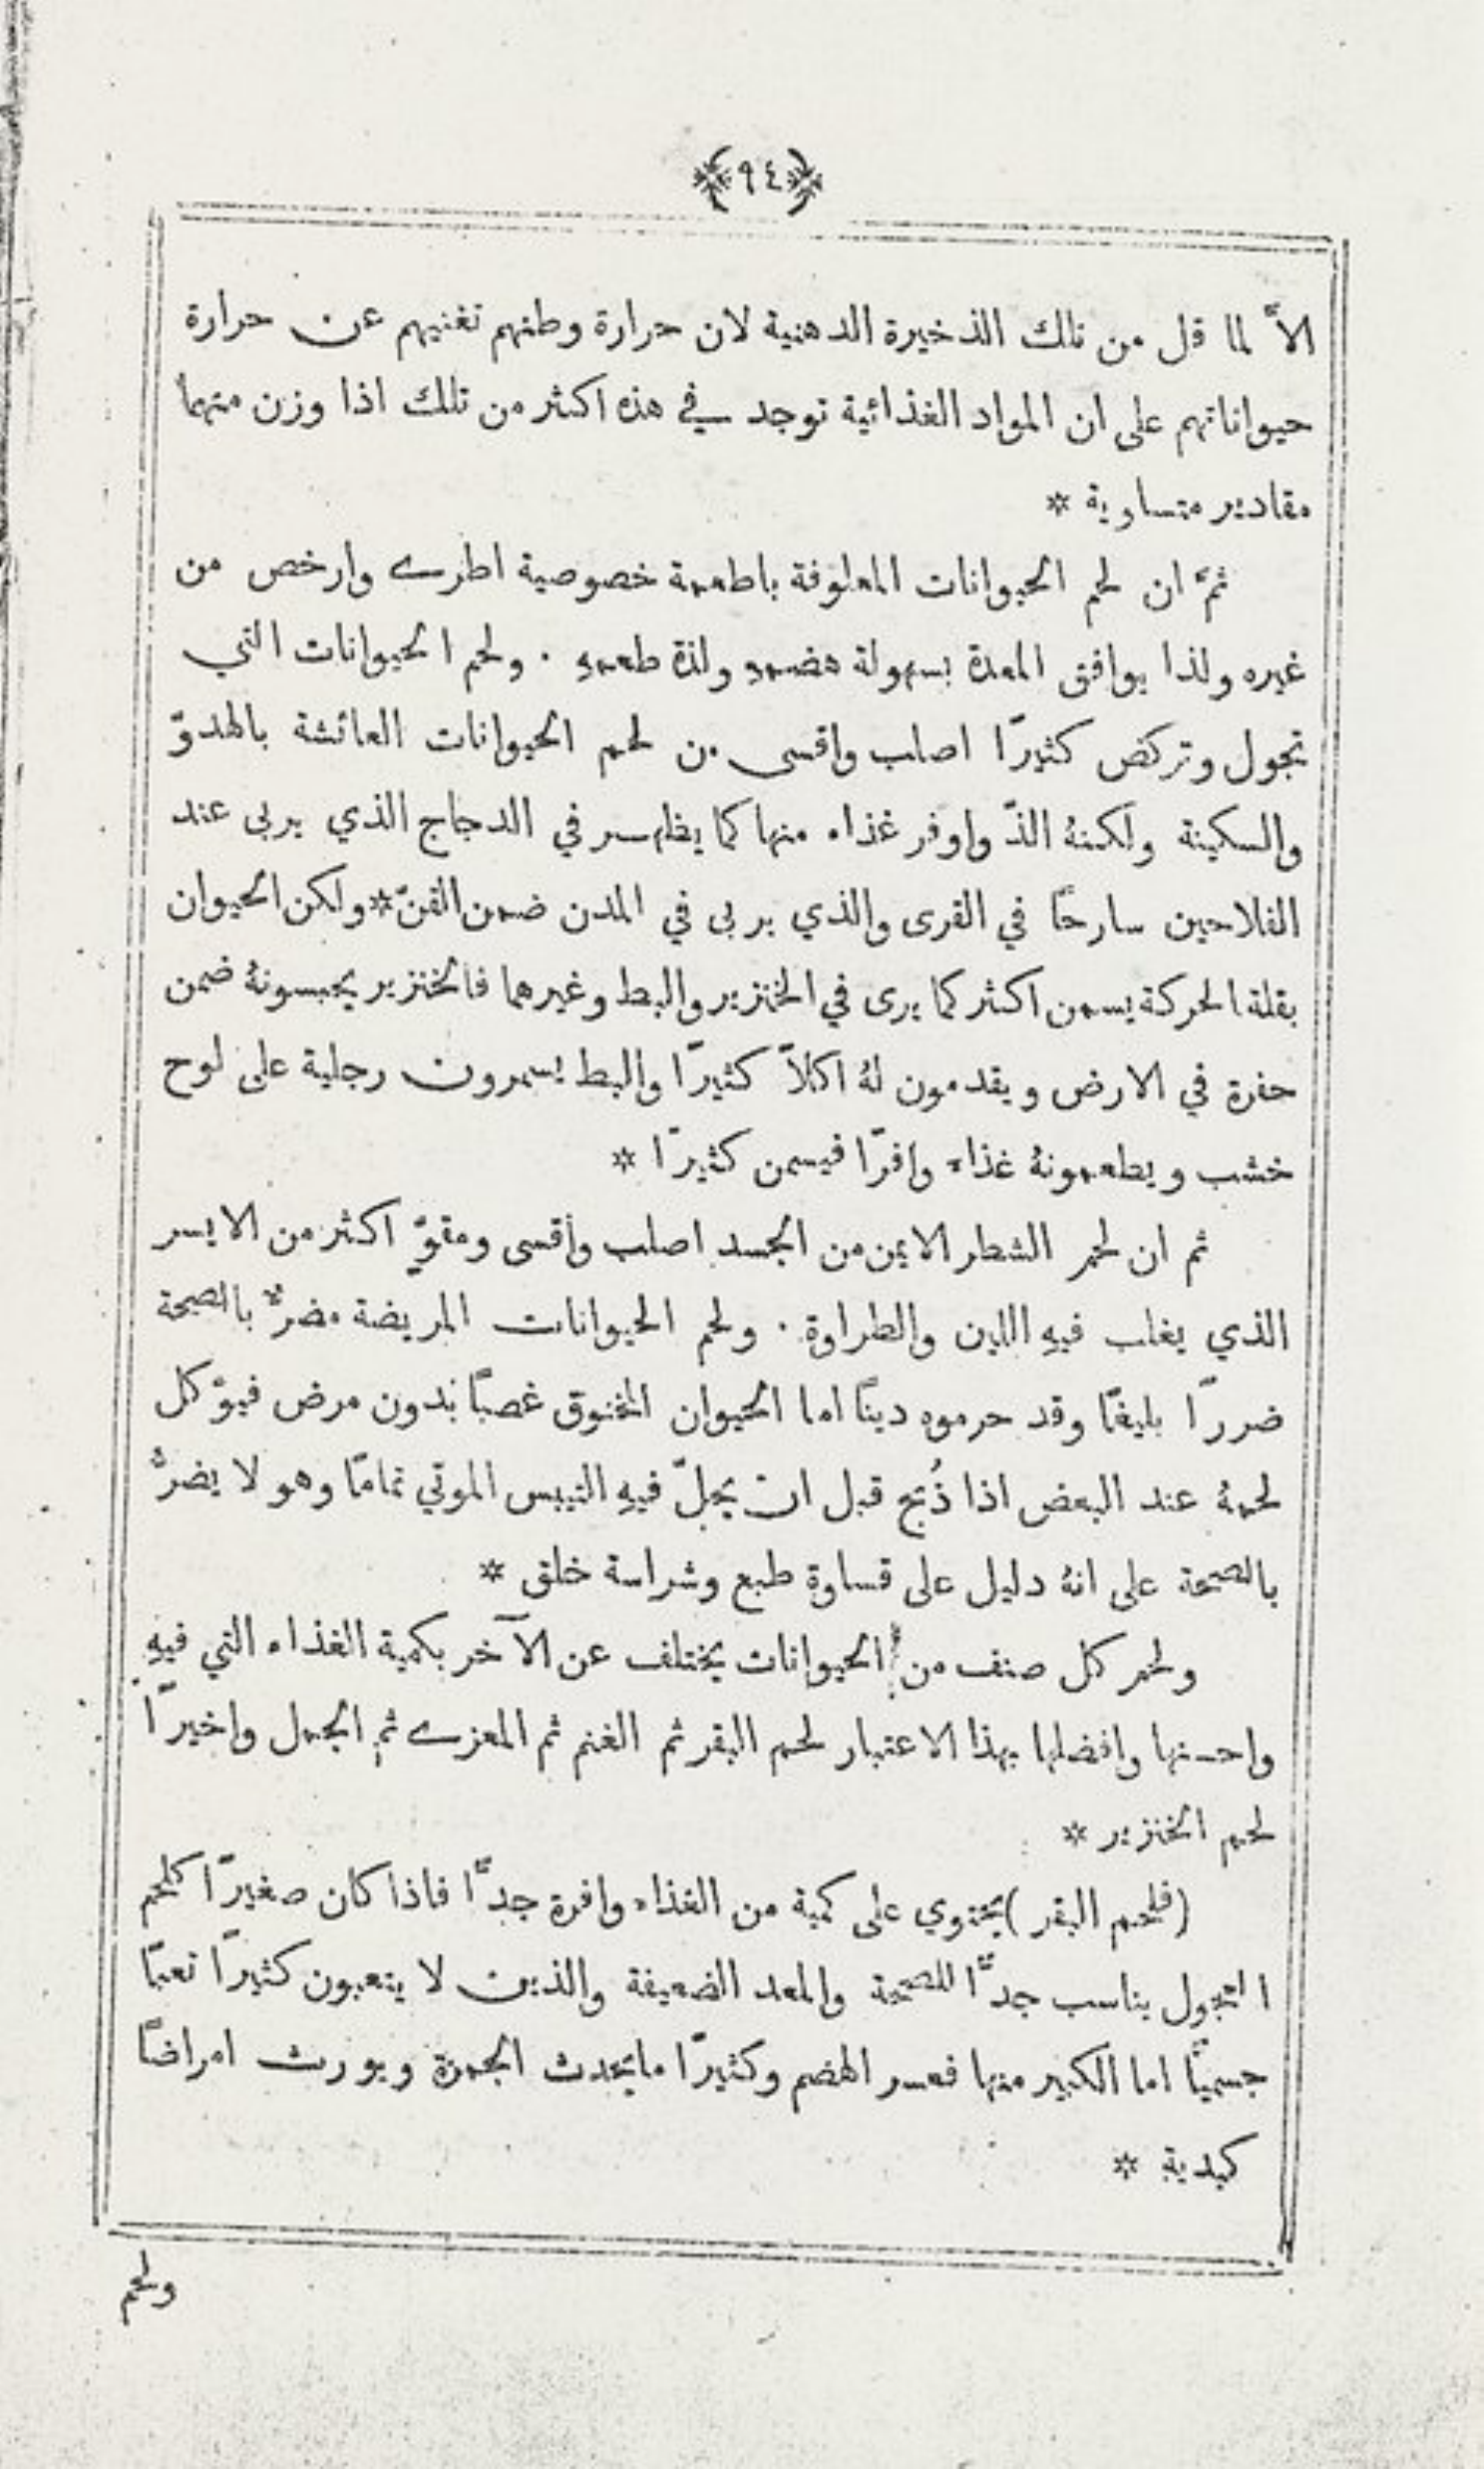 ﴿٩٤﴾
الاَّ لما قل من تلك الذخيرة الدهنية لان حرارة وطنهم تغنيهم عن حرارة
حيواناتهم على ان المواد الغذائية توجد في هذه اكثر من تلك اذا وزن منهما
مقادير متساوية *
ثمَّ ان لحم الحيوانات المعلوفة باطعمة خصوصية اطرى وارخص من
غيره ولذا يوافق المعدة بسهولة هضمهِ ولذة طعمهِ ٠ ولحم الحيوانات التي
تجول وتركض كثيرًا اصلب واقسى من لحم الحيوانات العائشة بالهدوّ
والسكينة ولكنهُ الذّ واوفر غذاء منها كما يظهر في الدجاج الذي يربى عند
الفلاحين سارحًا في القرى والذي يربى في المدن ضمن القنّ * ولكن الحيوان
بقلة الحركة يسمن اكثر كما يرى في الخنزير والبط وغيرهما فالخنزير يحبسونهُ ضمن
حفرة في الارض ويقدمون لهُ اكلاً كثيرًا والبط يسمرون رجلية على لوح
خشب ويطعمونهُ غذاء وافرًا فيسمن كثيرًا *
ثم ان لحم الشطر الايمن من الجسد اصلب وأقسى ومقوٍّ اكثر من الايسر
الذي يغلب فيهِ اللين والطراوة ٠ ولحم الحيوانات المريضة مضرٌّ بالصحة
ضررًا بليغًا وقد حرموه دينًا اما الحيوان المخنوق غصبًا بدون مرض فيؤكل
لحمهُ عند البعض اذا ذُبح قبل ان يحلّ فيهِ التيبس الموتي تمامًا وهو لا يضرُّ
بالصحة على انهُ دليل على قساوة طبع وشراسة خلق *
ولحم كل صنف من الحيوانات يختلف عن الآخر بكمية الغذاء التي فيهِ
واحسنها وافضلها بهذا الاعتبار لحم البقر ثم الغنم ثم المعزى ثم الجمل واخيرًا
لحم الخنزير *
(فلحم البقر) يحتوي على كمية من الغذاء وافرة جدًّا فاذا كان صغيرًا كلحم
العجول يناسب جدًّا للصحة والمعد الضعيفة والذين لا يتعبون كثيرًا تعبًا
جسميًّا اما الكبير منها فعسر الهضم وكثيرًا ما يحدث الجمرة ويورث امراضًا
كبدية *
ولحم